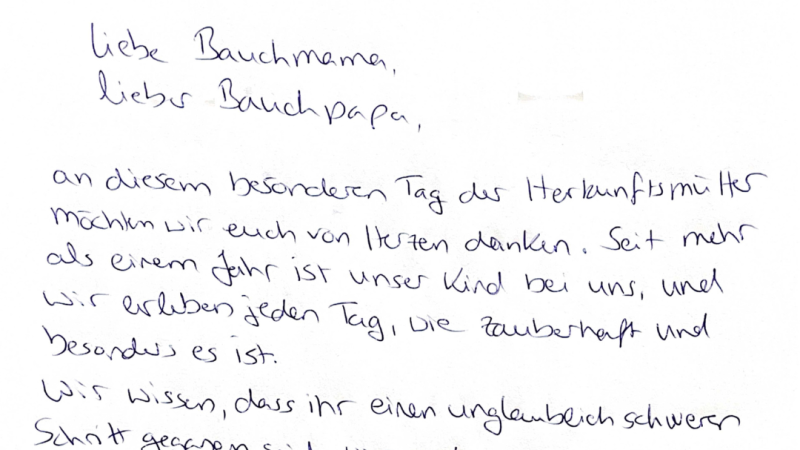 liebe Bauchmama,
lieber Bauchpapa,
an diesem besonderen Tag der Herkunftsmütter
möchten wir euch von Herzen danken. Seit mehr
als einem Jahr ist unser Kind bei uns, und
wir erleben jeden Tag, wie zauberhaft und
besonders es ist.
Wir wissen, dass ihr einen unglaublich schweren
Schritt gegangen seid